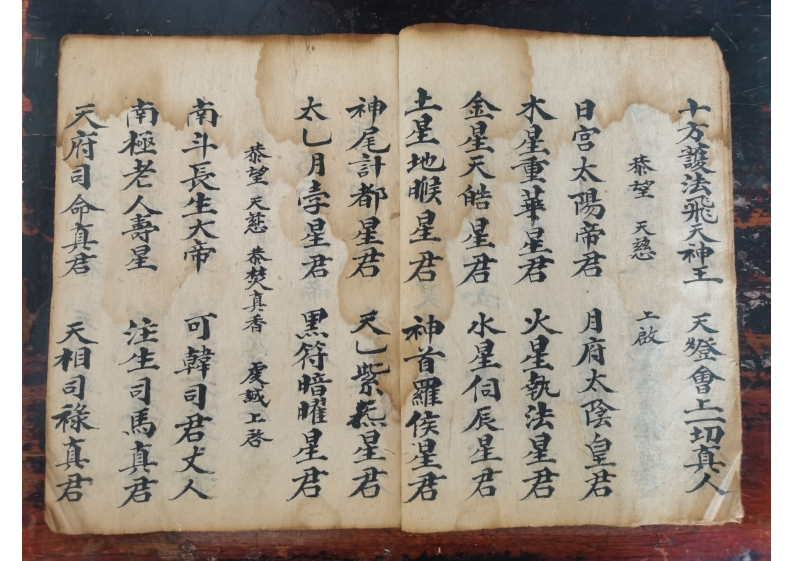 十方護法飛天神王 天燈會上一切真人
恭望 天慈 上啟
日宮太陽帝君 月府太陰皇君
木星重華星君 火星執法星君
金星天皓星君 水星伺辰星君
土星地睺星君 神首羅睺星君
神尾計都星君 天乚紫炁星君
太乚月孛星君 黑符暗曜星君
恭望 天慈 恭焚真香 虔誠上啓
南斗長生大帝 可韓司君丈人
南極老人壽星 注生司馬真君
天府司命真君 天相司祿真君